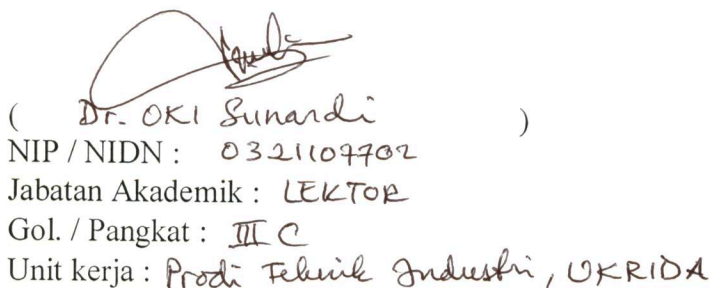 ( Dr. OKI Sunardi )
NIP / NIDN : 0321107702
Jabatan Akademik : LEKTOR
Gol. / Pangkat : III C
Unit kerja : Prodi Teknik Industri, UKRIDA